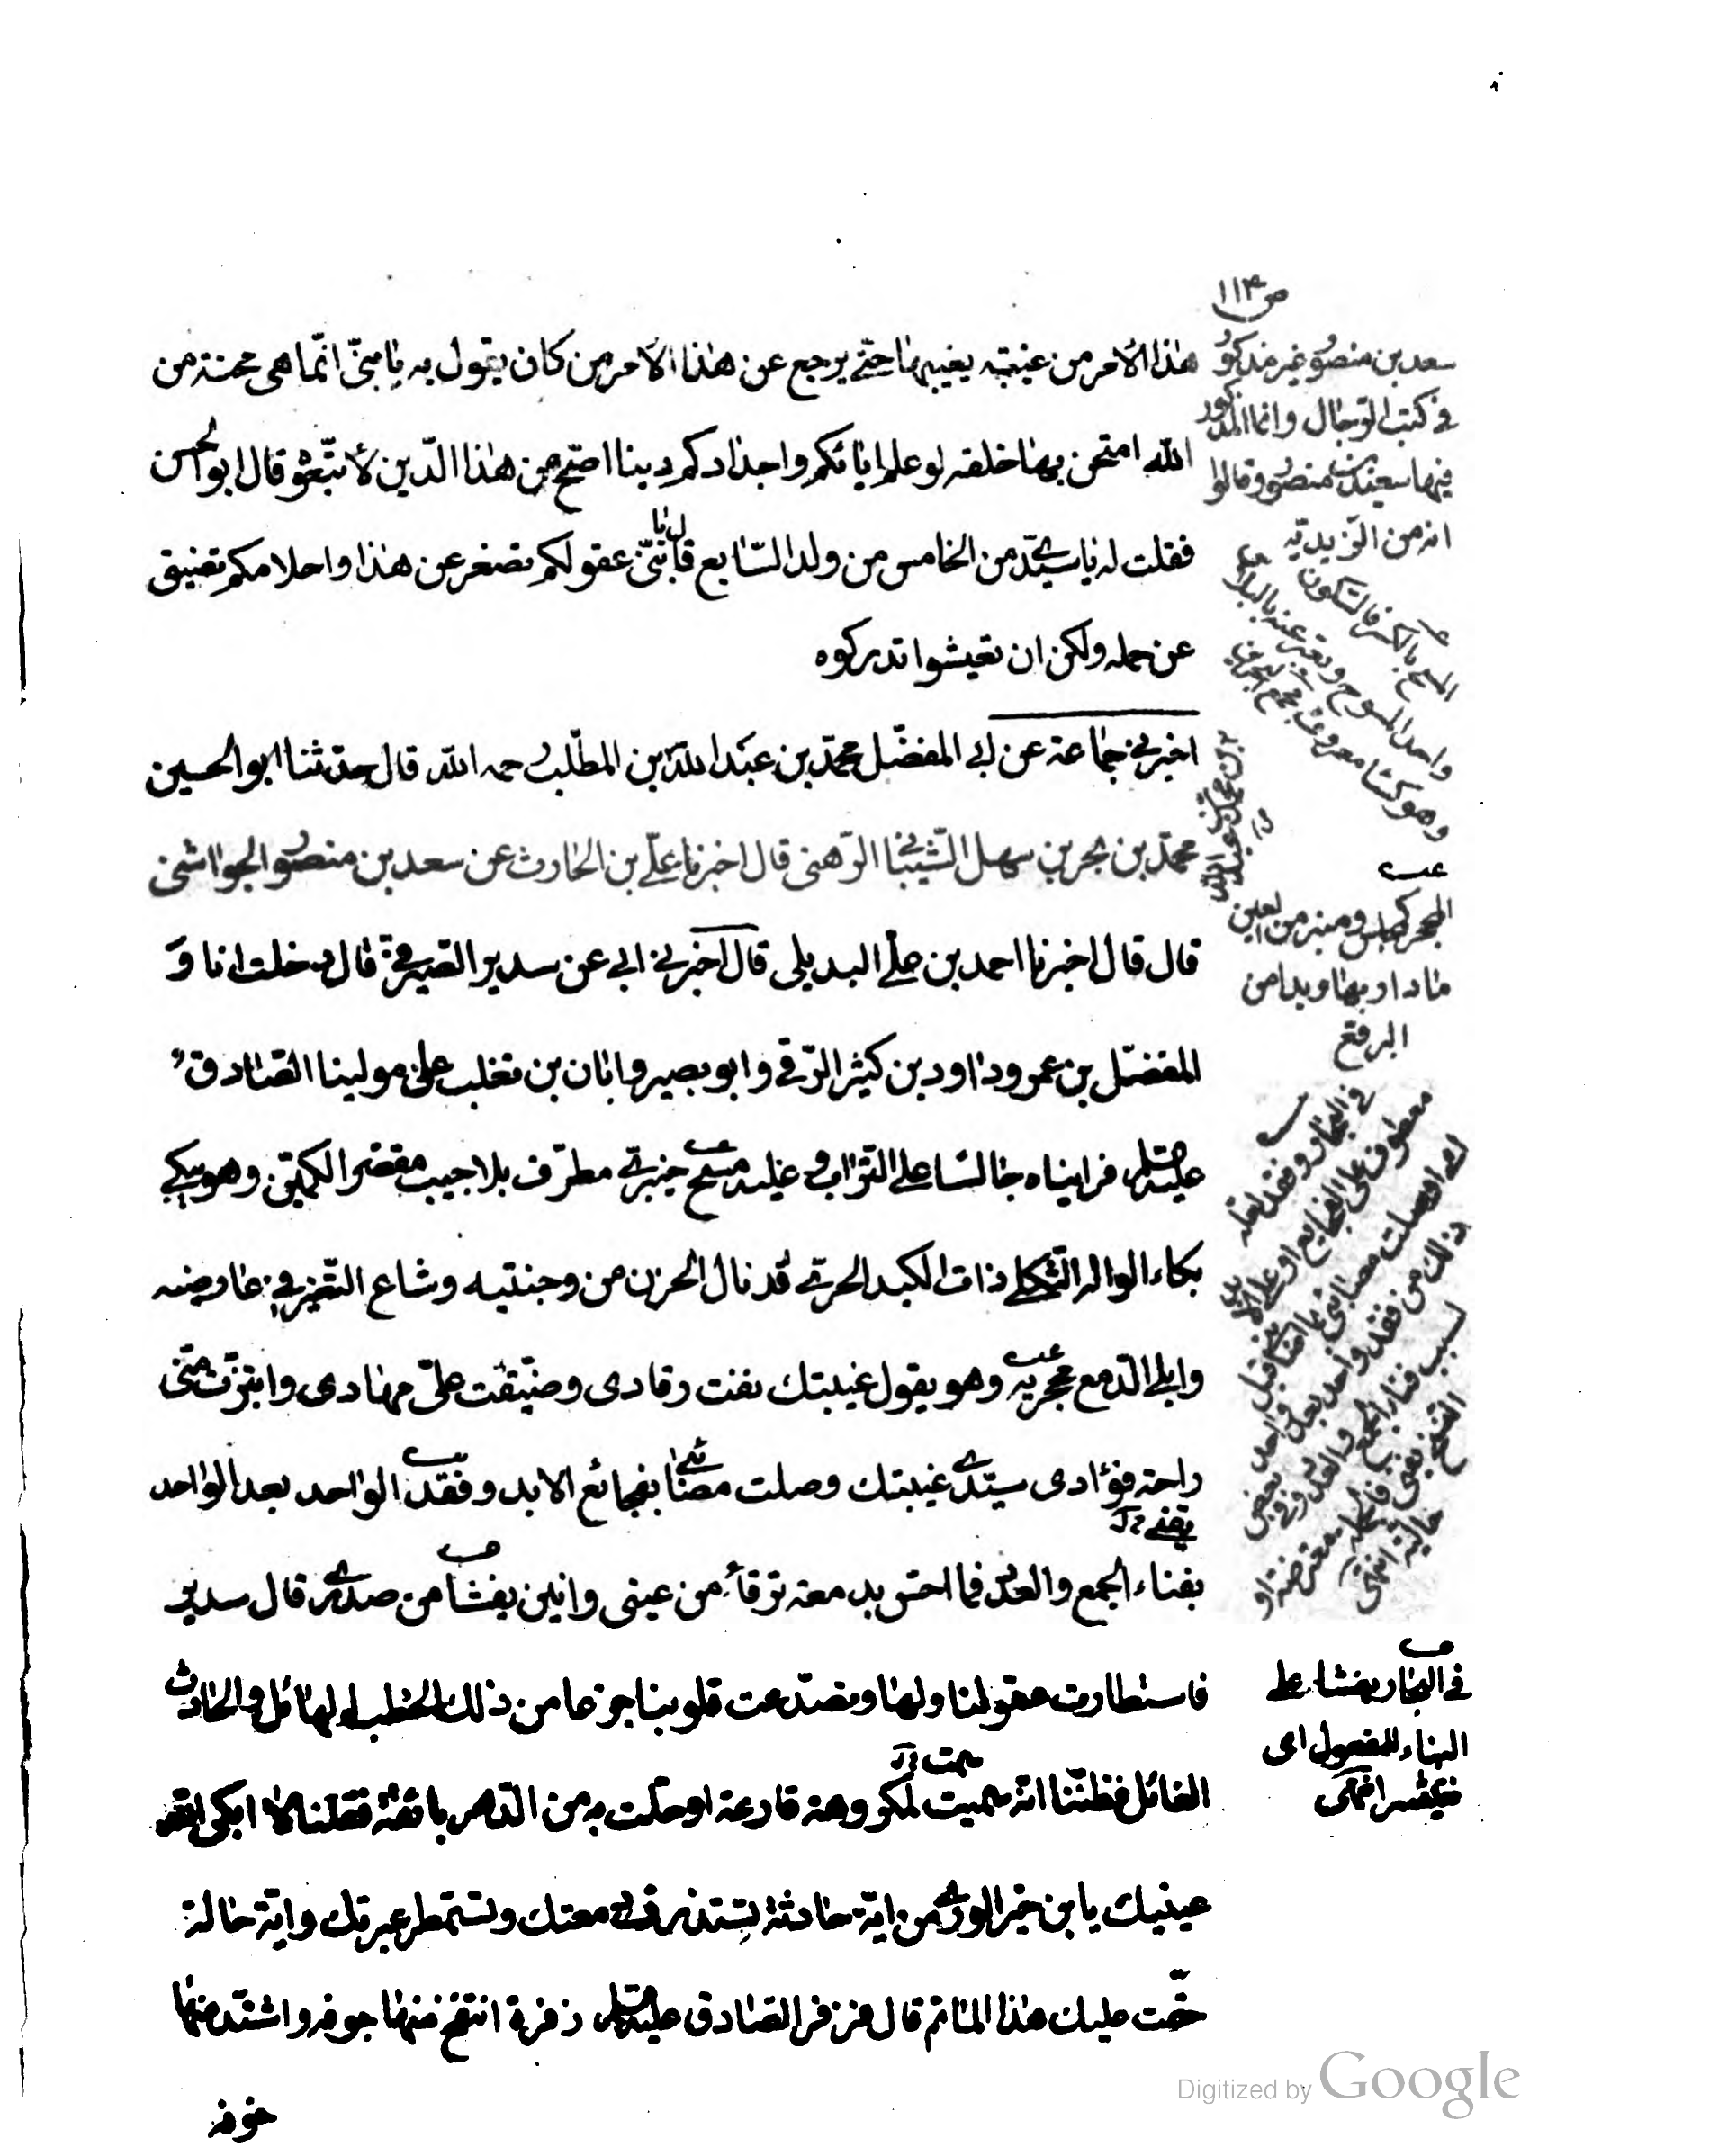 ص ١١٣
هذا الأمر من غيبته يغيبها حتى يرجع عن هذا الأمر من كان يقول به يا بنيّ انّما هي محنة من
الله امتحن بها خلقه لو علم ابائكم واجدادكم دينا اصحّ من هذا الدّين لأتّبعوه قال ابو الحسن
فقلت له يا سيّدي من الخامس من ولد السّابع قال يا بنيّ عقولكم تصغر عن هذا واحلامكم تضيق
عن حمله ولكن ان تعيشوا تدركوه
اخبرني جماعة عن ابي المفضّل محمّد بن عبد الله بن المطّلب رحمه الله قال حدثنا ابو الحسين
محمّد بن بحر بن سهل الشّيباني الرّهني قال اخبرنا عليّ بن الحارث عن سعد بن منصور الجواشني
قال قال اخبرنا احمد بن علي البديلي قال اخبرني ابي عن سدير الصّيرفي قال دخلت انا وَ
المفضّل بن عمر وداود بن كثير الرّقي وابو بصير وابان بن تغلب على مولينا الصّادق
عليه السلام فرايناه جالسا على التراب وعليه مسح خيبري مطرّف بلا جيب مقصّر الكمّين وهو يبكي
بكاء الواله الثّكلى ذات الكبد الحرّى قد نال الحزن من وجنتيه وشاع التّغيّر في عارضيه
وابلى الدّمع محجريه وهو يقول غيبتك نفت رقادى وضيّقت عليّ مهادى وابتزّت منّي
راحة فؤادى سيّدي غيبتك وصلت مصائبي بفجائع الابد وفقد الواحد بعد الواحد
بفناء الجمع والعدد فما احسّ بدمعة ترقأ من عيني وانين يفشا من صدري قال سدير
فاستطارت عقولنا ولها وتصدّعت قلوبنا جزعا من ذلك الخطب الهائل والحادث
الغائل فظنّنا انّه سميت لمكروهة قارعة او حلّت به من الدّهر بائقة فقلنا لا ابكى الله
عينيك يا بن خير الورى من ايّة حادثة تستذرف دمعتك وتستمطر عبرتك وايّة حالة
حتّمت عليك هذا الماتم قال فزفر الصّادق عليه السلام زفرة انتفخ منها جوفه واشتدّ منها
خوفه
سعد بن منصور غير مذكور
في كتب الرّجال وانما المذكور
فيها سعيد بن منصور وقالوا
انه من الزّيدية
المسح بالكسر فالسّكون
واحد المسوح ويعبّر عنه بالبلاس
وهو كساء معروف مجمع البحرين
بن محمد بن عبيد الله
المحجر كمجلس ومنبر من العين
ما دار بها وبدا من
البرقع
في البحار وفقد لعله
معطوف على الفجايع او على الابد
في البحار يفشا على
البناء للمفعول اى
ينتشر انتهى
Digitized by Google